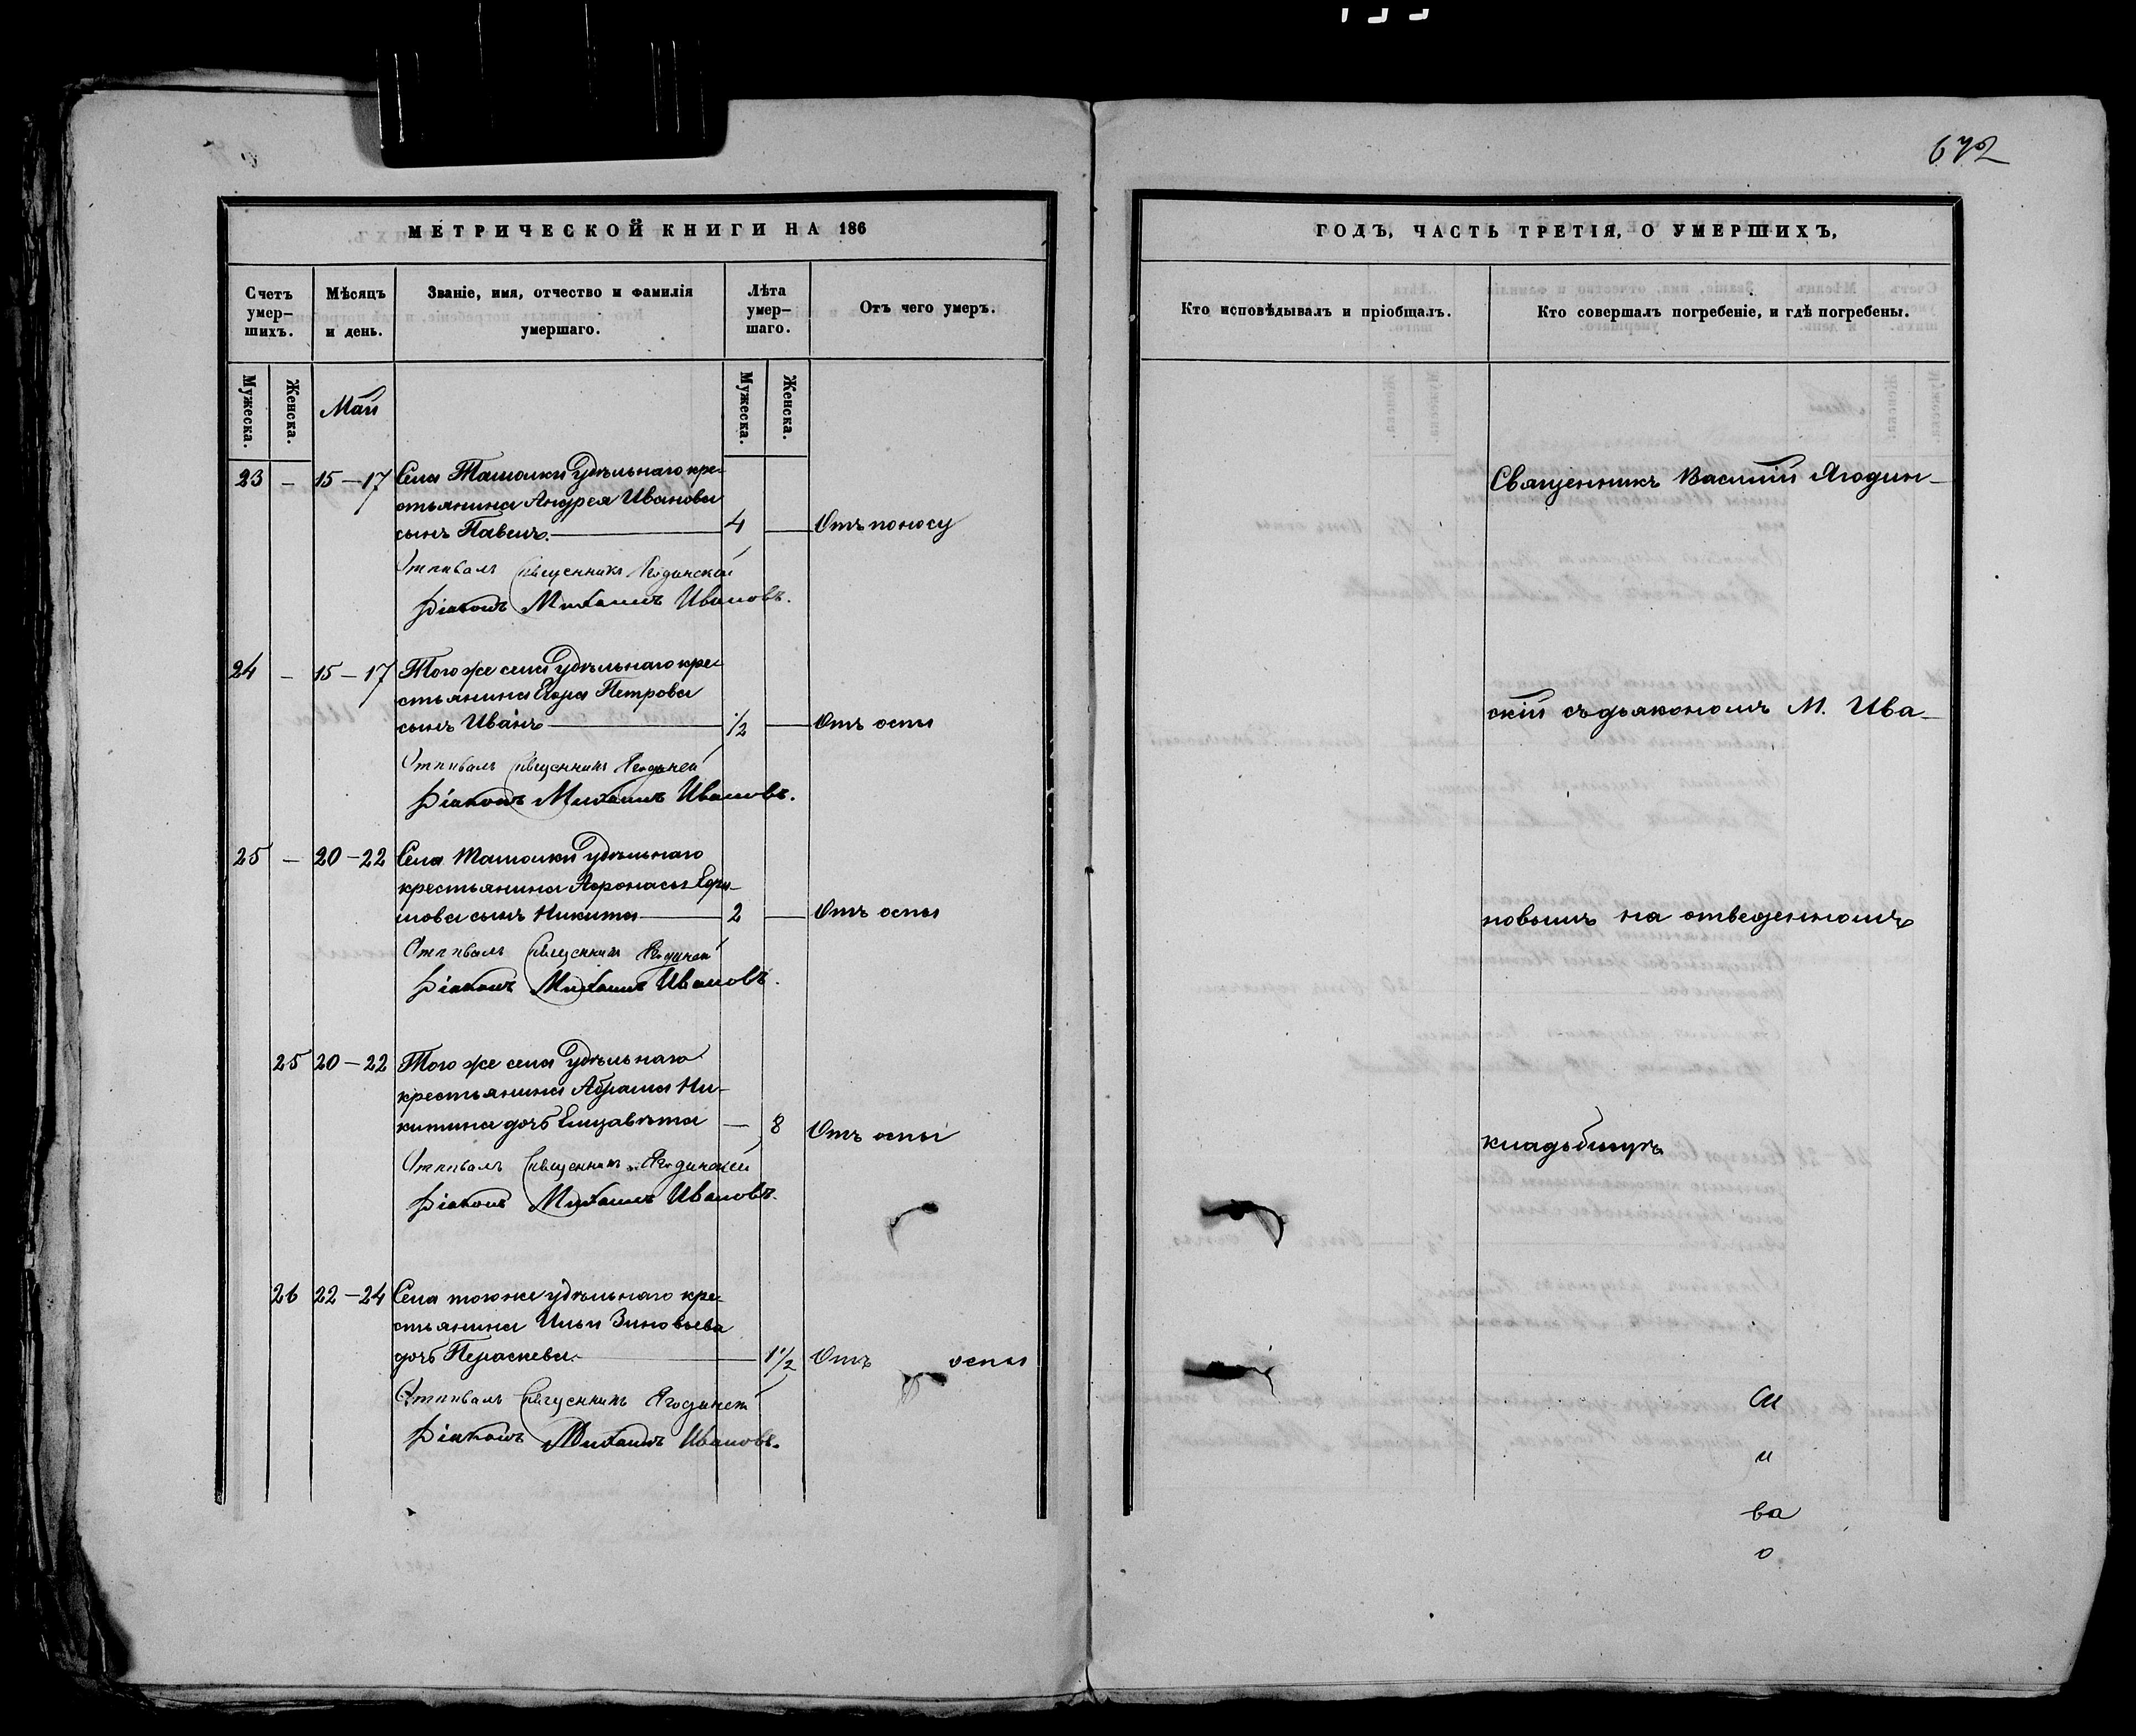 672
МЕТРИЧЕСКОЙ КНИГИ НА 186
Счетъ умер-шихъ.
Мѣсяцъ и день.
Званіе, имя, отчество и фамилія умершаго.
Лѣта умер-шаго.
Отъ чего умеръ.
Мужеска.
Женска.
Май
Мужеска.
Женска.
23 — 15–17 Села Ташолки Удѣльнаго кре-
стьянина Андрея Иванова
сынъ Павелъ. — 4 — Отъ поносу
Отпѣвалъ Священникъ Ягодинскій
Діаконъ Михаилъ Ивановъ.
24 — 15–17 Того же села Удѣльнаго кре-
стьянина Егора Петрова
сынъ Иванъ — 1/2 — Отъ оспы
Отпѣвалъ Священникъ
Діаконъ Михаилъ Ивановъ.
25 — 20–22 Села Ташолки Удѣльнаго
крестьянина Афонасы Ефи-
мова сынъ Никита — 2 — Отъ оспы
Отпѣвалъ Священникъ
Діаконъ Михаилъ Ивановъ.
25 20–22 Того же села Удѣльнаго
крестьянина Абрама Ни-
китина дочь Елизавѣта — 8 Отъ оспы
Отпѣвалъ Священникъ Ягодинскій
Діаконъ Михаилъ Ивановъ.
26 22–24 Села тогоже удѣльнаго кре-
стьянина Ильи Зиновьева
дочь Параскева. — 1 1/2 Отъ оспы
Отпѣвалъ Священникъ
Діаконъ Михаилъ Ивановъ.
ГОДЪ, ЧАСТЬ ТРЕТІЯ, О УМЕРШИХЪ,
Кто исповѣдывалъ и пріобщалъ.
Кто совершалъ погребеніе, и гдѣ погребены.
Священникъ Василій Ягодин-
скій съ дьякономъ М. Ива-
новымъ на отведенномъ
кладьбищѣ
си
и
ва
о